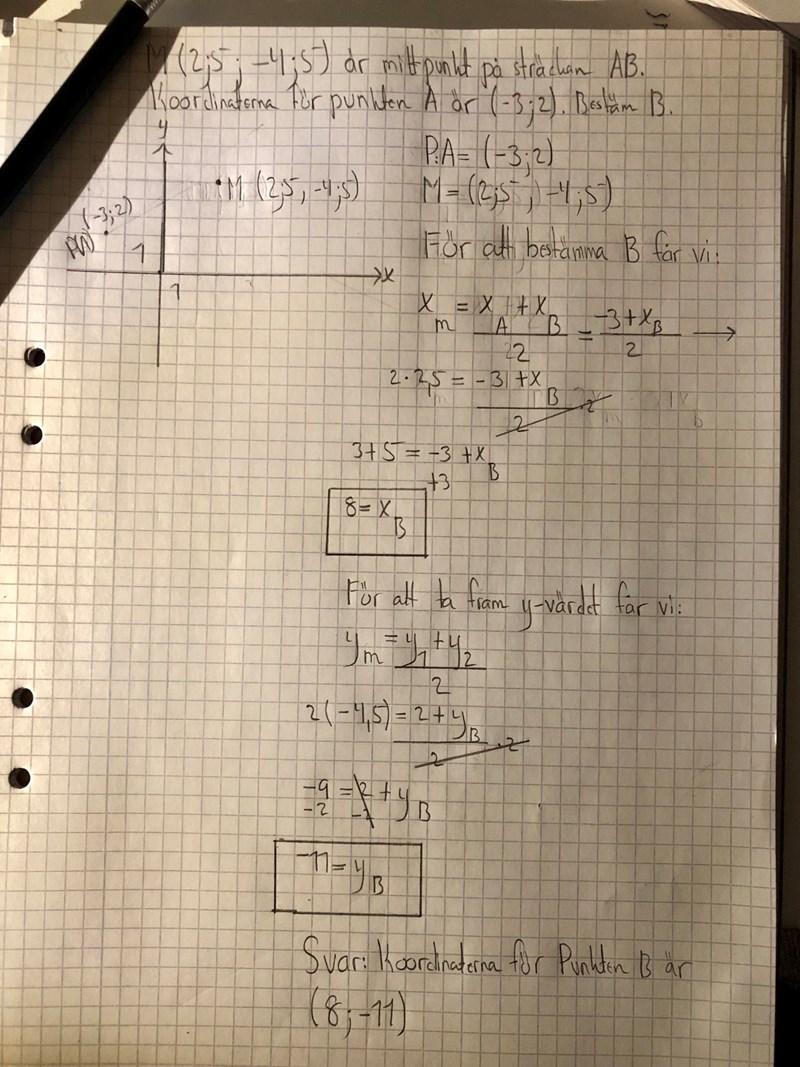 M (2;5 ; -4;5) är mittpunkt på sträckan AB.
Koordinaterna för punkten A är (-3;2). Bestäm B.
y
P:A = (-3;2)
M (2;5, -4;5)
M = (2;5 ; -4;5)
(-3;2)
P(A)
1
x
1
För att bestämma B får vi:
x_m = (x_A + x_B)/2 = (-3 + x_B)/2 →
2 · 2,5 = (-3 + x_B)/2 · 2
3+5 = -3 + x_B
+3
8 = x_B
För att ta fram y-värdet får vi:
y_m = (y_1 + y_2)/2
2(-4,5) = (2 + y_B)/2 · 2
-9 = 2 + y_B
-2 -2
-11 = y_B
Svar: Koordinaterna för Punkten B är
(8; -11)